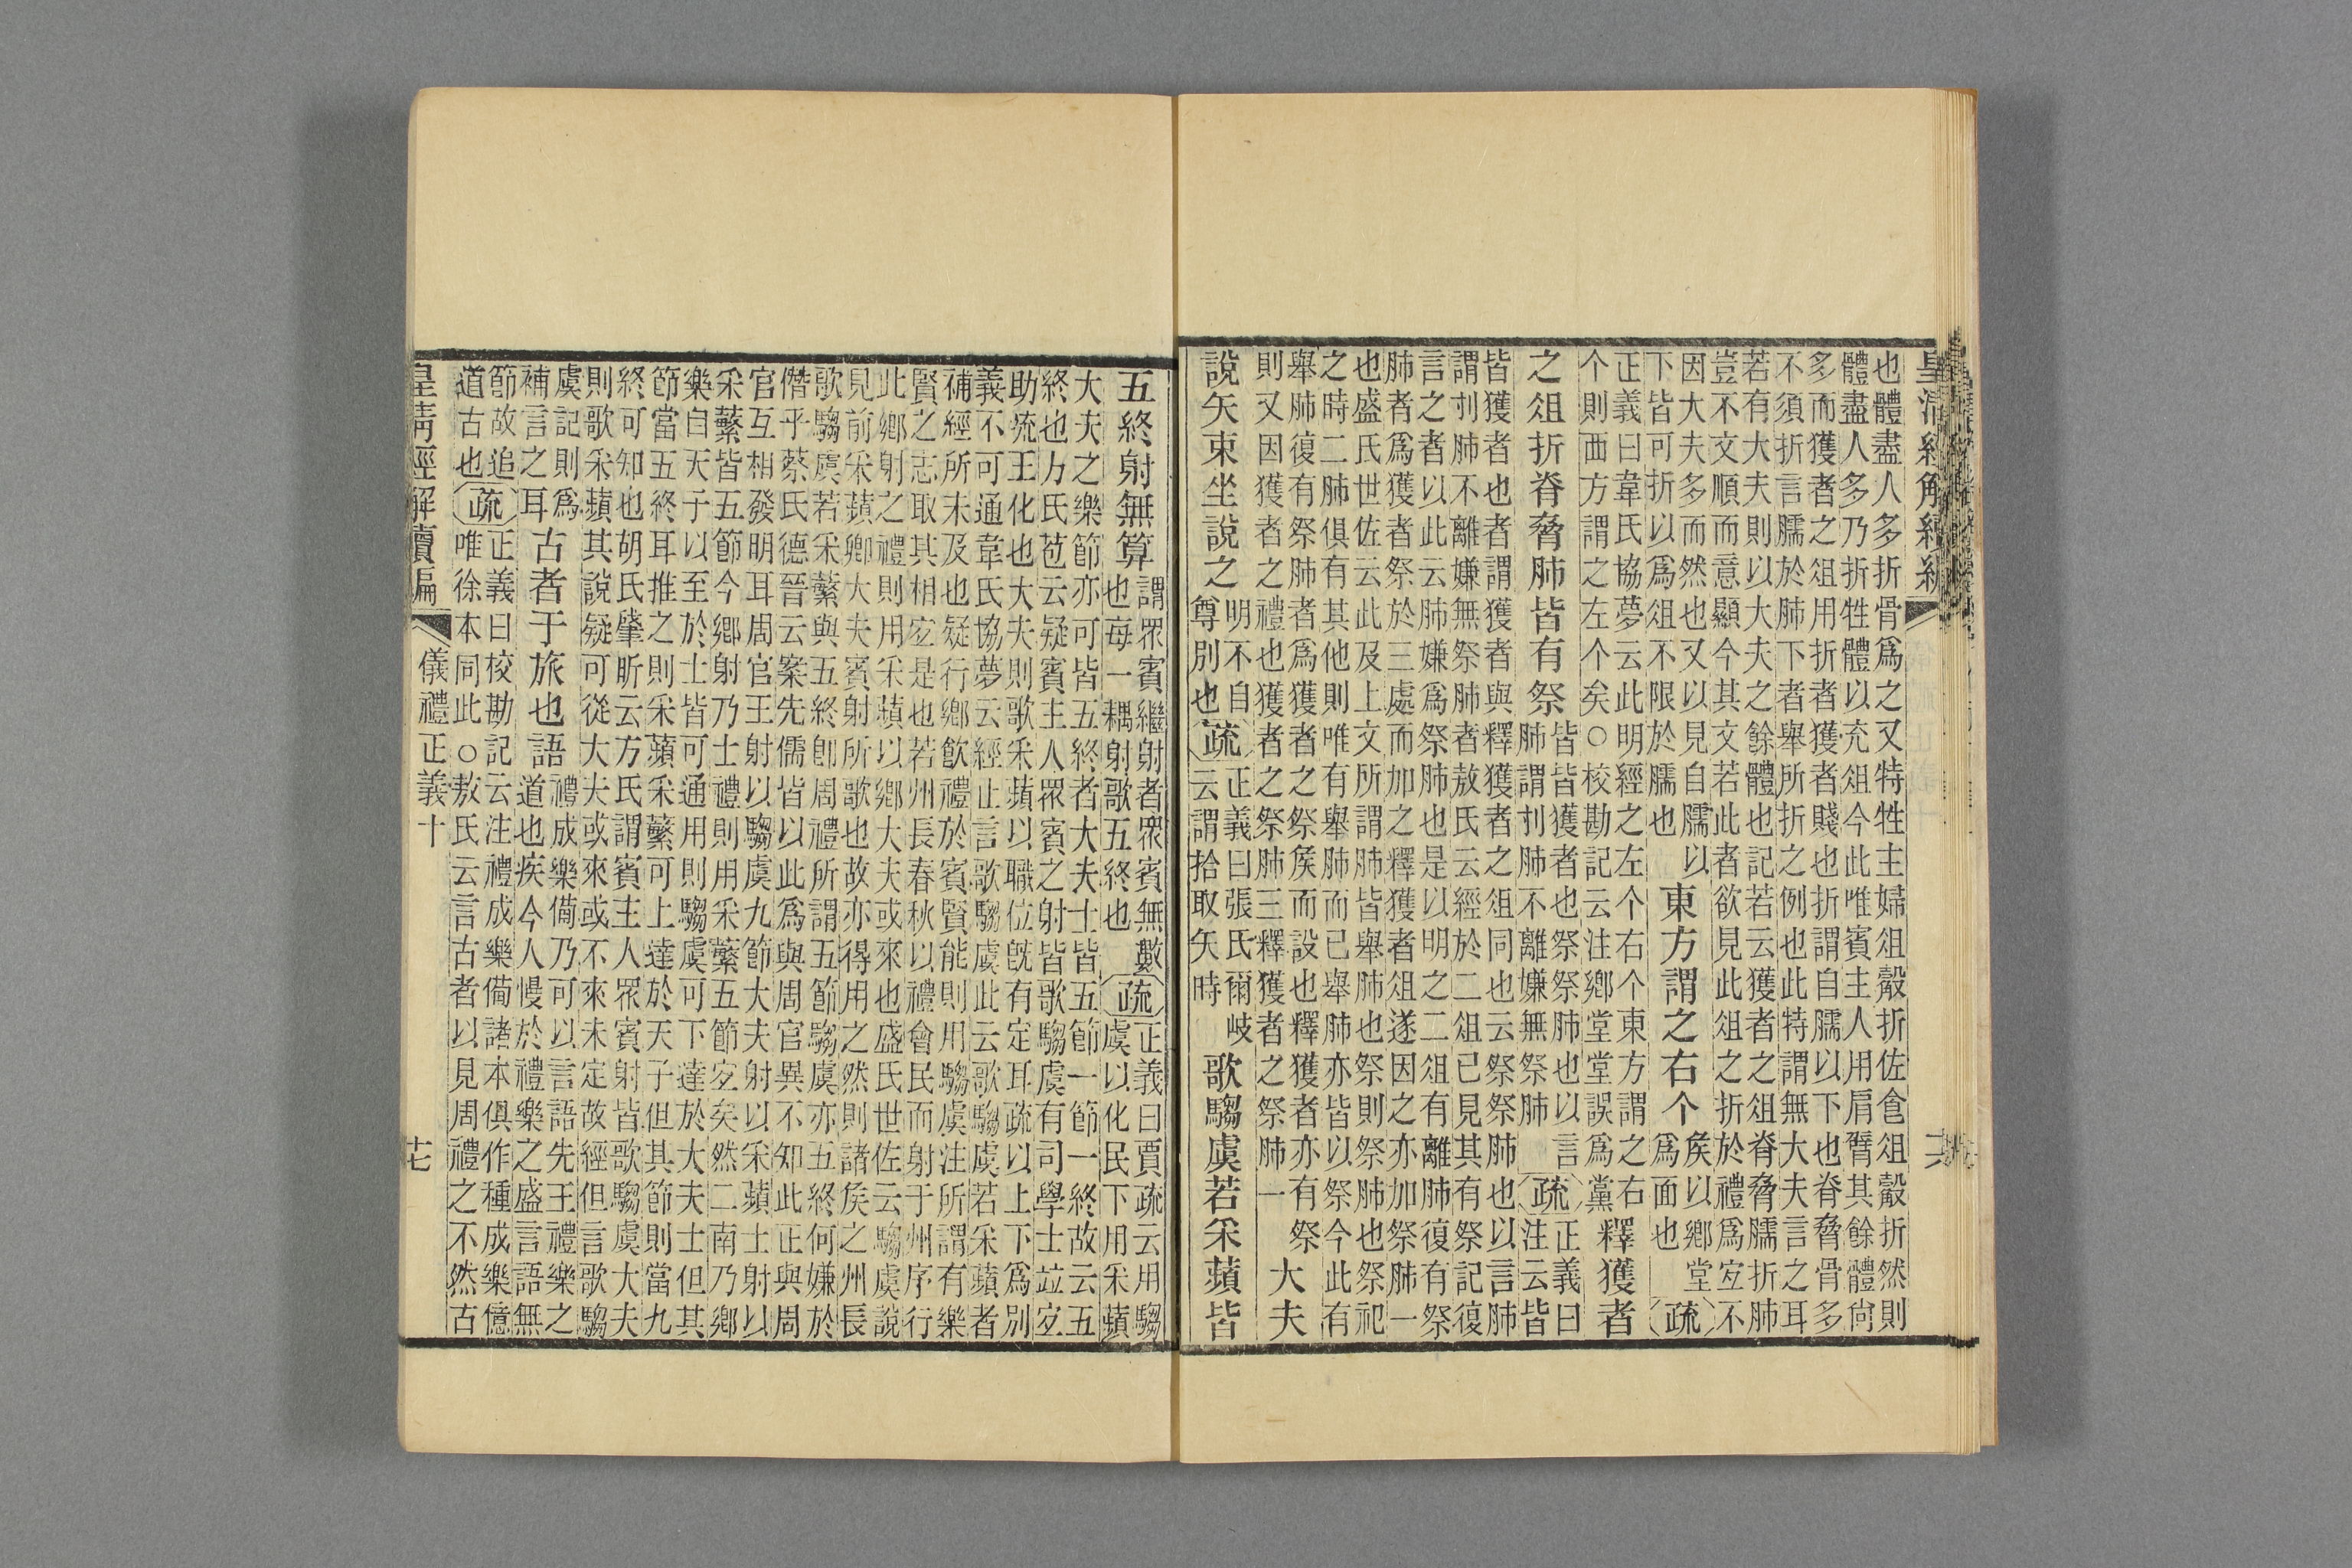 皇清經解續編
也體盡人多折骨爲之又特牲主婦俎觳折佐食俎觳折然則
體盡人多乃折牲體以充俎今此唯賓主人用肩臂其餘體尙
多而獲者之俎用折者獲者賤也折謂自臑以下也脊脅骨多
不須折言臑於肺下者舉所折之例也此特謂無大夫言之耳
若有大夫則以大夫之餘體也記若云獲者之俎脊脅臑折肺
豈不文順而意顯今其文若此者欲見此俎之折於禮爲宐不
因大夫多而然也又以見自臑以
下皆可折以爲俎不限於臑也
東方謂之右个
侯以鄉堂
爲面也
疏
正義曰韋氏協夢云此明經之左个右个東方謂之右
个則西方謂之左个矣○校勘記云注鄉堂堂誤爲黨
釋獲者
之俎折脊脅肺皆有祭
皆皆獲者也祭祭肺也以言
肺謂刌肺不離嫌無祭肺
疏
正義曰
注云皆
皆獲者也者謂獲者與釋獲者之俎同也云祭祭肺也以言肺
謂刌肺不離嫌無祭肺者敖氏云經於二俎已見其有祭記復
言之者以此云肺嫌爲祭肺也是以明之二俎有離肺復有祭
肺者爲獲者祭於三處而加之釋獲者俎遂因之亦加祭肺一
也盛氏世佐云此及上文所謂肺皆舉肺也祭則祭肺也祭祀
之時二肺俱有其他則唯有舉肺而已舉肺亦皆以祭今此有
舉肺復有祭肺者爲獲者之祭侯而設也釋獲者亦有祭
則又因獲者之禮也獲者之祭肺三釋獲者之祭肺一
大夫
說矢束坐說之
明不自
尊別也
疏
正義曰張氏爾岐
云謂拾取矢時
歌騶虞若采蘋皆
五終射無算
謂眾賓繼射者眾賓無數
也每一耦射歌五終也
疏
正義曰賈疏云用騶
虞以化民下用采蘋
大夫之樂節亦可皆五終者大夫士皆五節一節一終故云五
終也方氏苞云疑賓主人眾賓之射皆歌騶虞有司學士竝宐
助流王化也大夫則歌采蘋以職位旣有定耳疏以上下爲別
義不可通韋氏協夢云經止言歌騶虞此云歌騶虞若采蘋者
補經所未及也疑行鄉飲禮於賓賢能則用騶虞注所謂有樂
賢之志取其相宐是也若州長春秋以禮會民而射于州序行
此鄉射之禮則用采蘋以鄉大夫或來也盛氏世佐云騶虞說
見前采蘋卿大夫賓射所歌也故亦得用之然則諸侯之州長
歌騶虞若采蘩與五終卽周禮所謂五節騶虞亦五終何嫌於
僭乎蔡氏德晉云案先儒皆以此爲與周官異不知此正與周
官互相發明耳周官王射以騶虞九節大夫射以采蘋士射以
采蘩皆五節今鄉射乃士禮則用采蘩五節宐矣然二南乃鄉
樂自天子以至於士皆可通用則騶虞可下達於大夫士但其
節當五終耳推之則采蘋采蘩可上達於天子但其節則當九
終可知也胡氏肇昕云方氏謂賓主人眾賓射皆歌騶虞大夫
則歌采蘋其說疑可從大夫或來或不來未定故經但言歌騶
虞記則爲
補言之耳
古者于旅也語
禮成樂備乃可以言語先王禮樂之
道也疾今人慢於禮樂之盛言語無
節故追
道古也
疏
正義曰校勘記云注禮成樂備諸本俱作種成樂億
唯徐本同此○敖氏云言古者以見周禮之不然古
皇清經解續編
儀禮正義十